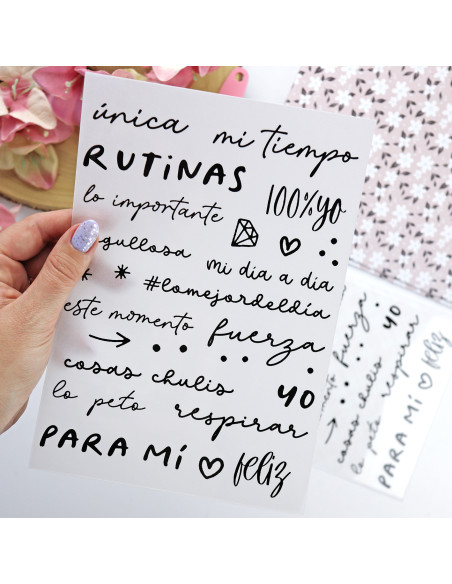 única mi tiempo
RUTiNAS 100%yo
lo importante
gullosa mi dia a dia
#lomejordeldía
este momento fuerza
cosas chulis YO
lo peto respirar
PARA MÍ feliz
fuerza YO
cosas chulis respirar
lo peto
PARA MÍ feliz